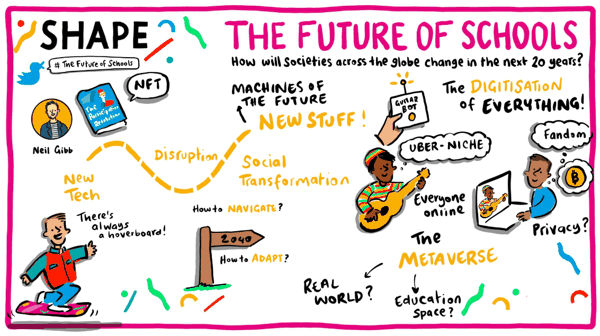 SHAPE
# The Future of Schools
THE FUTURE OF SCHOOLS
How will societies across the globe change in the next 20 years?
NFT
The Participation Revolution
Neil Gibb
MACHINES OF
THE FUTURE
NEW STUFF!
Disruption
New
Tech
Social
Transformation
There's
always
a hoverboard!
How to NAVIGATE?
2040
How to ADAPT?
GUITAR
BOT
The DIGITISATION
of EVERYTHING!
UBER-NICHE
Fandom
Everyone
online
Privacy?
The
METAVERSE
REAL
WORLD?
Education
space?